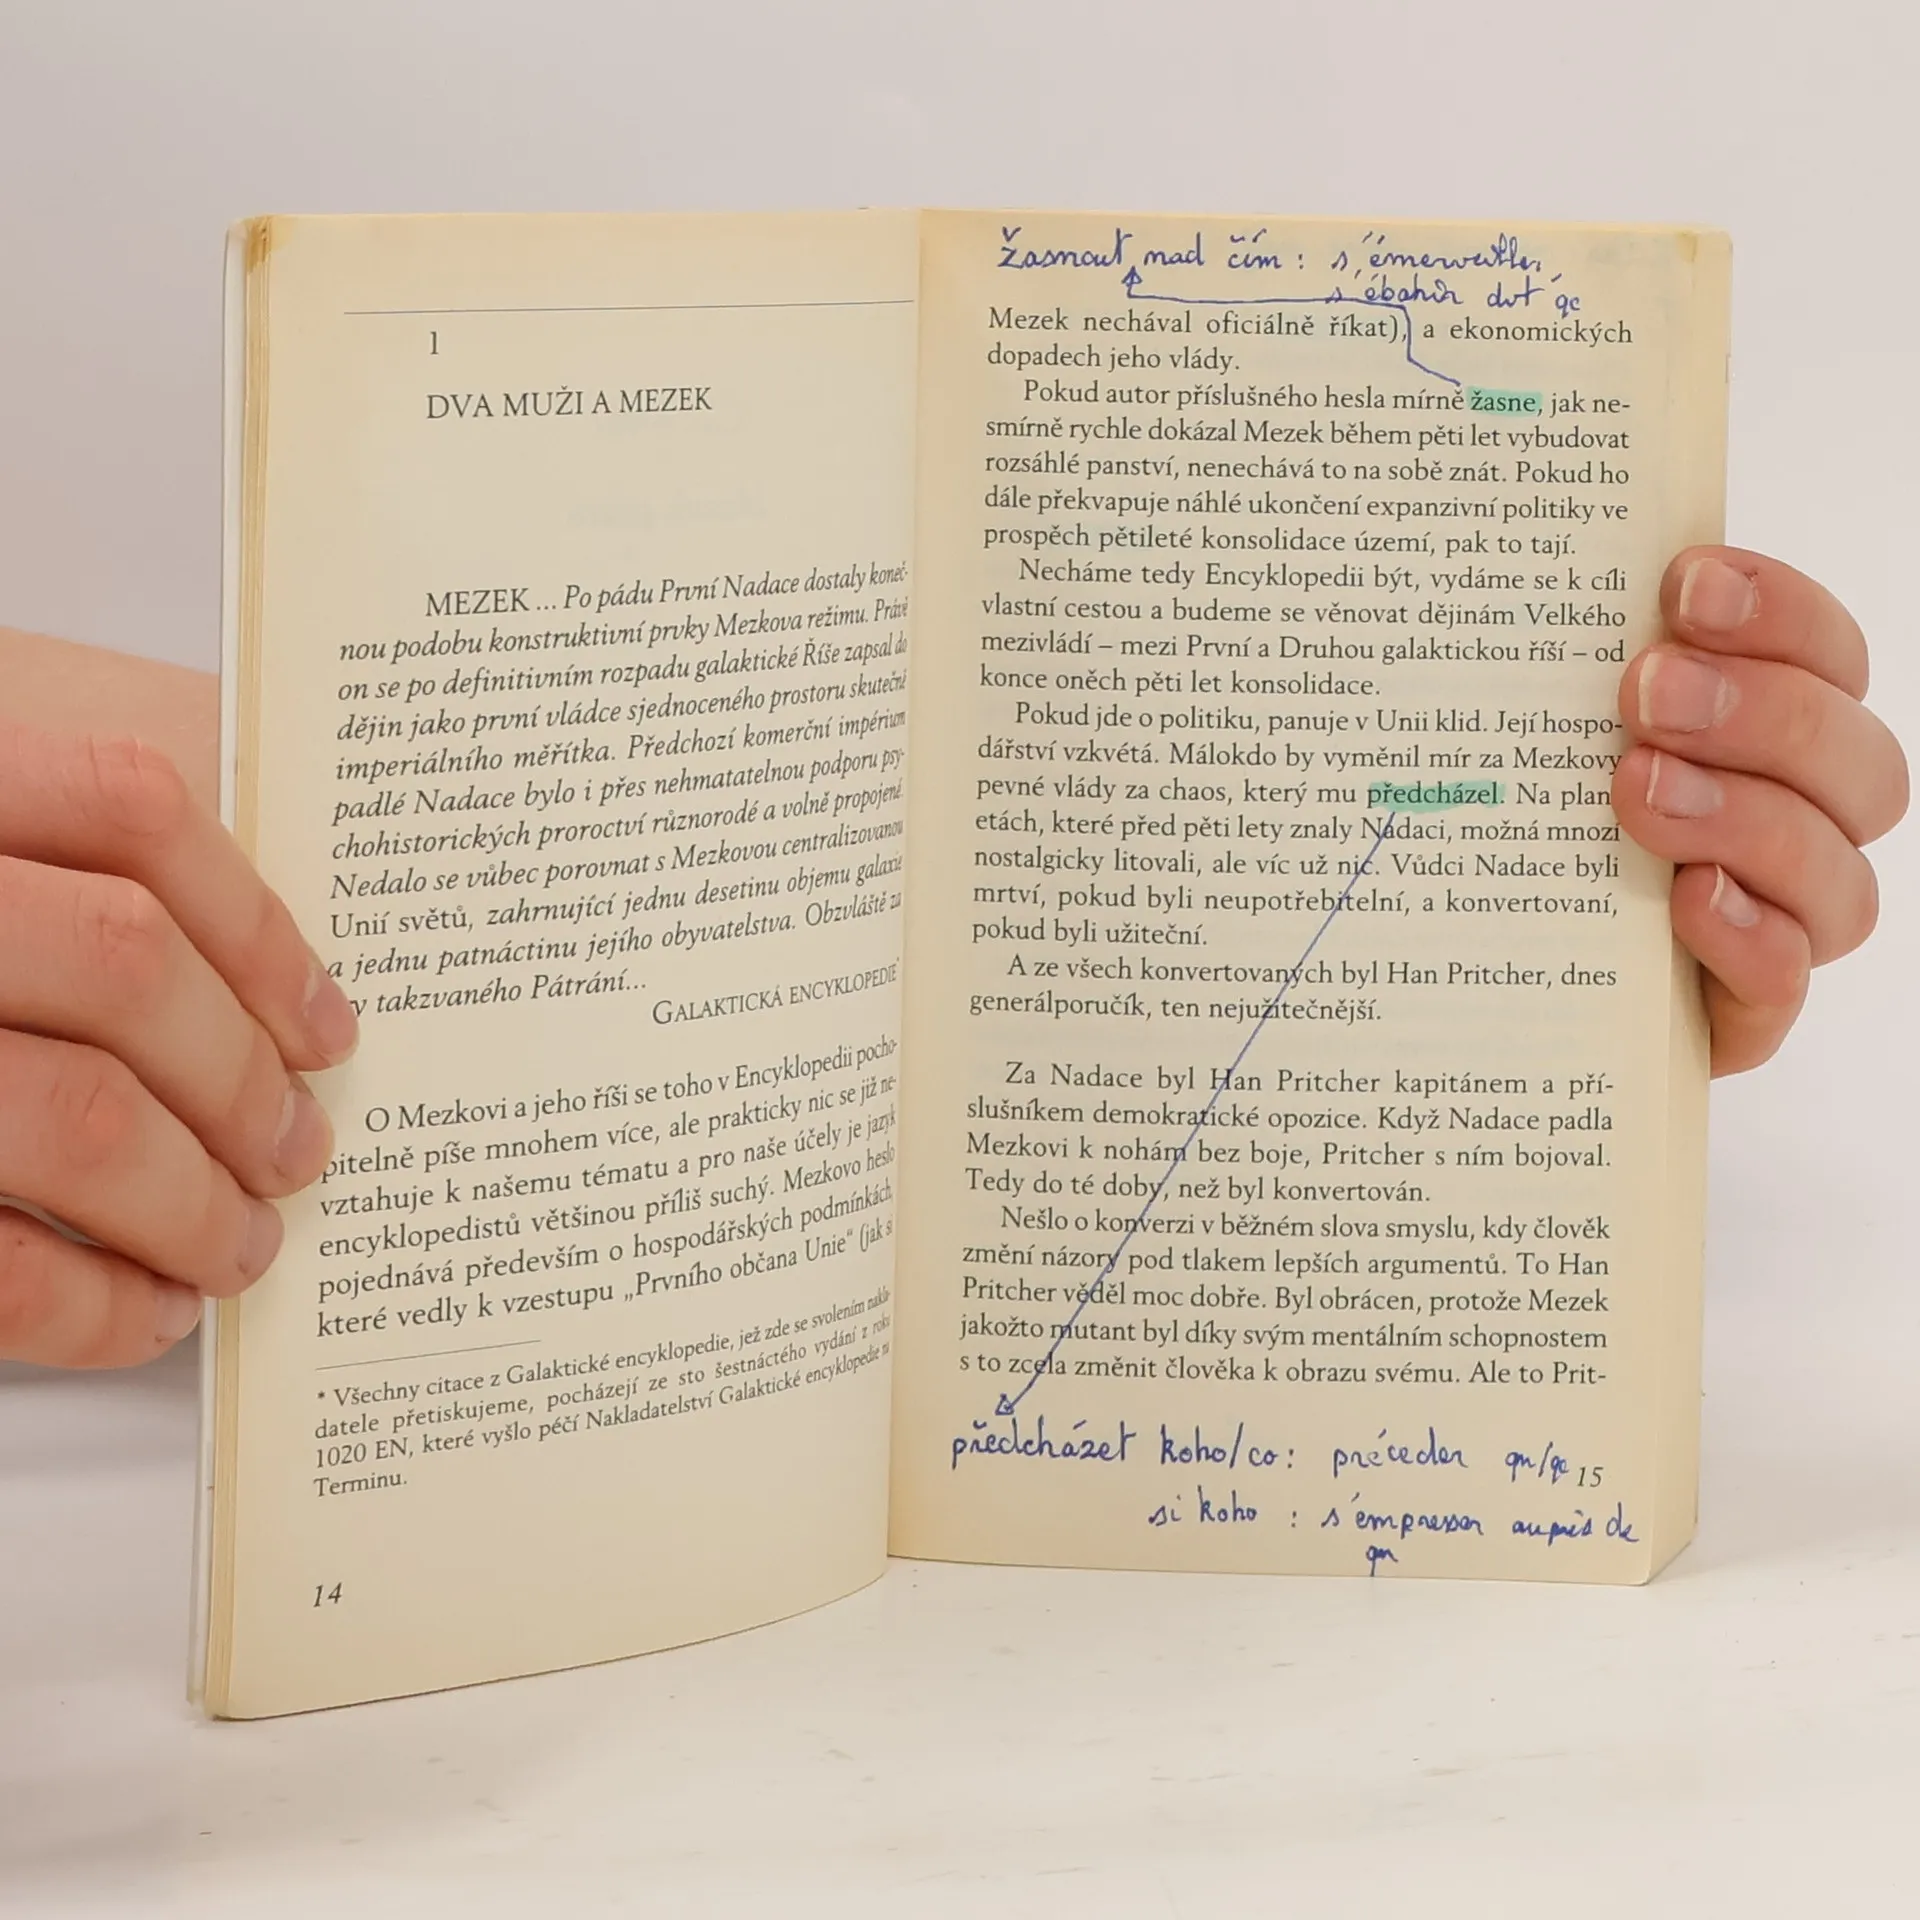 1
DVA MUŽI A MEZEK
MEZEK ... Po pádu První Nadace dostaly koneč-
nou podobu konstruktivní prvky Mezkova režimu. Právě
on se po definitivním rozpadu galaktické Říše zapsal do
dějin jako první vládce sjednoceného prostoru skutečně
imperiálního měřítka. Předchozí komerční impérium
padlé Nadace bylo i přes nehmatatelnou podporu psy-
chohistorických proroctví různorodé a volně propojené.
Nedalo se vůbec porovnat s Mezkovou centralizovanou
Unií světů, zahrnující jednu desetinu objemu galaxie
a jednu patnáctinu jejího obyvatelstva. Obzvláště za
y takzvaného Pátrání...
GALAKTICKÁ ENCYKLOPEDIE*
O Mezkovi a jeho říši se toho v Encyklopedii pocho-
pitelně píše mnohem více, ale prakticky nic se již ne-
vztahuje k našemu tématu a pro naše účely je jazyk
encyklopedistů většinou příliš suchý. Mezkovo heslo
pojednává především o hospodářských podmínkách,
které vedly k vzestupu „Prvního občana Unie“ (jak si
* Všechny citace z Galaktické encyklopedie, jež zde se svolením nakla-
datele přetiskujeme, pocházejí ze sto šestnáctého vydání z roku
1020 EN, které vyšlo péčí Nakladatelství Galaktické encyklopedie na
Terminu.
14
žasnout nad čím : s'émerveiller,
s'ébahir dvt qc
Mezek nechával oficiálně říkat), a ekonomických
dopadech jeho vlády.
Pokud autor příslušného hesla mírně žasne, jak ne-
smírně rychle dokázal Mezek během pěti let vybudovat
rozsáhlé panství, nenechává to na sobě znát. Pokud ho
dále překvapuje náhlé ukončení expanzivní politiky ve
prospěch pětileté konsolidace území, pak to tají.
Necháme tedy Encyklopedii být, vydáme se k cíli
vlastní cestou a budeme se věnovat dějinám Velkého
mezivládí – mezi První a Druhou galaktickou říší – od
konce oněch pěti let konsolidace.
Pokud jde o politiku, panuje v Unii klid. Její hospo-
dářství vzkvétá. Málokdo by vyměnil mír za Mezkovy
pevné vlády za chaos, který mu předcházel. Na plan
etách, které před pěti lety znaly Nadaci, možná mnozí
nostalgicky litovali, ale víc už nic. Vůdci Nadace byli
mrtví, pokud byli neupotřebitelní, a konvertovaní,
pokud byli užiteční.
A ze všech konvertovaných byl Han Pritcher, dnes
generálporučík, ten nejužitečnější.
Za Nadace byl Han Pritcher kapitánem a pří-
slušníkem demokratické opozice. Když Nadace padla
Mezkovi k nohám bez boje, Pritcher s ním bojoval.
Tedy do té doby, než byl konvertován.
Nešlo o konverzi v běžném slova smyslu, kdy člověk
změní názory pod tlakem lepších argumentů. To Han
Pritcher věděl moc dobře. Byl obrácen, protože Mezek
jakožto mutant byl díky svým mentálním schopnostem
s to zcela změnit člověka k obrazu svému. Ale to Prit-
předcházet koho/co : précéder qn/qc
15
si koho : s'empresser auprès de
qn